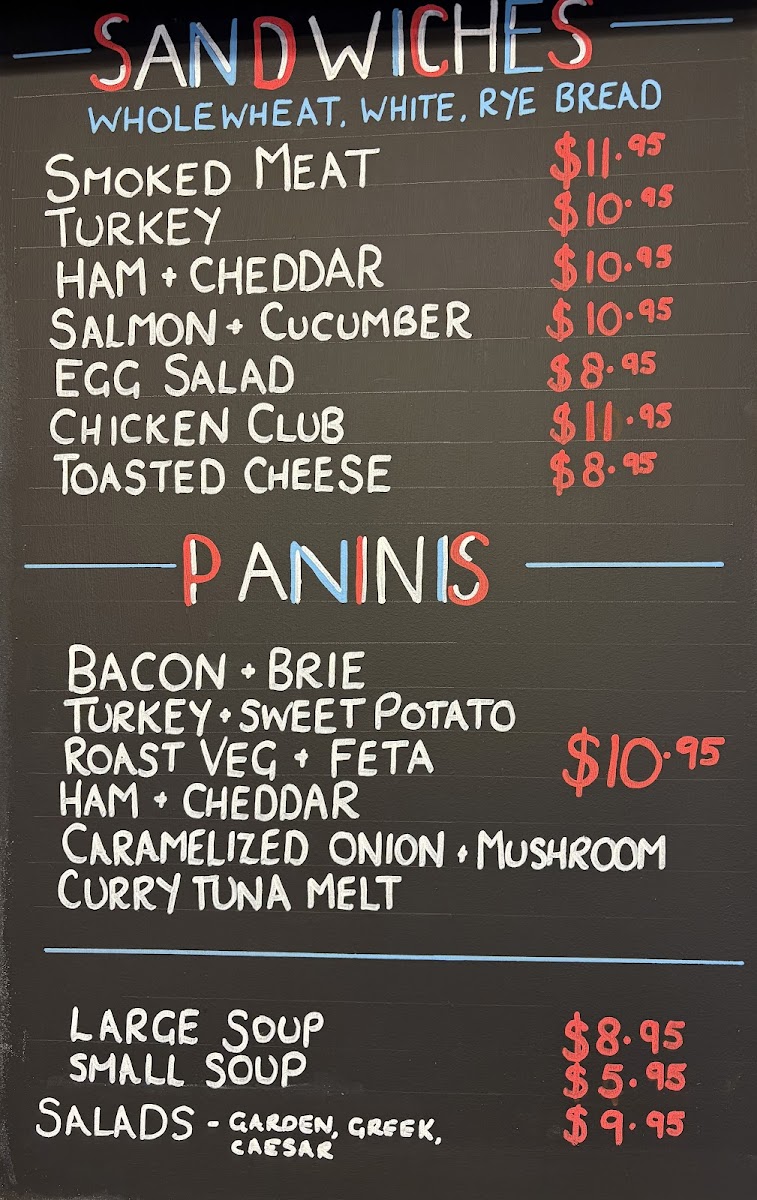 SANDWICHES
WHOLEWHEAT, WHITE, RYE BREAD
SMOKED MEAT $11.95
TURKEY $10.95
HAM + CHEDDAR $10.95
SALMON + CUCUMBER $10.95
EGG SALAD $8.95
CHICKEN CLUB $11.95
TOASTED CHEESE $8.95
PANINIS
BACON + BRIE
TURKEY + SWEET POTATO
ROAST VEG + FETA $10.95
HAM + CHEDDAR
CARAMELIZED ONION + MUSHROOM
CURRY TUNA MELT
LARGE SOUP $8.95
SMALL SOUP $5.95
SALADS - GARDEN, GREEK, $9.95
CAESAR